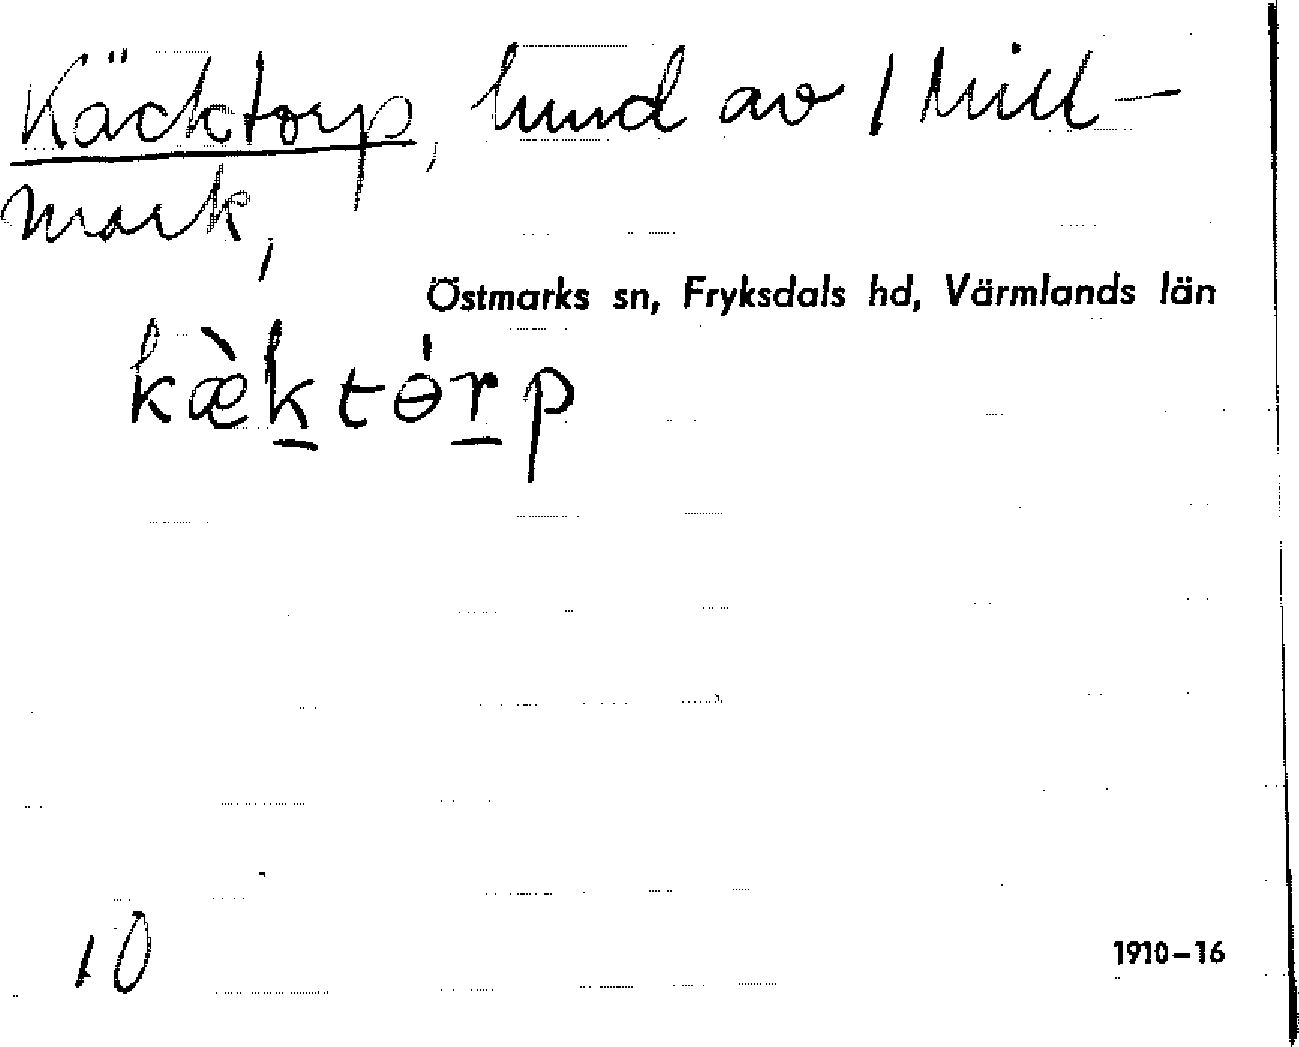 Käcktorp, lund av 1 Mill-
mark,
Östmarks sn, Fryksdals hd, Värmlands län
kæ̀ktɵ́rp
10
1910–16